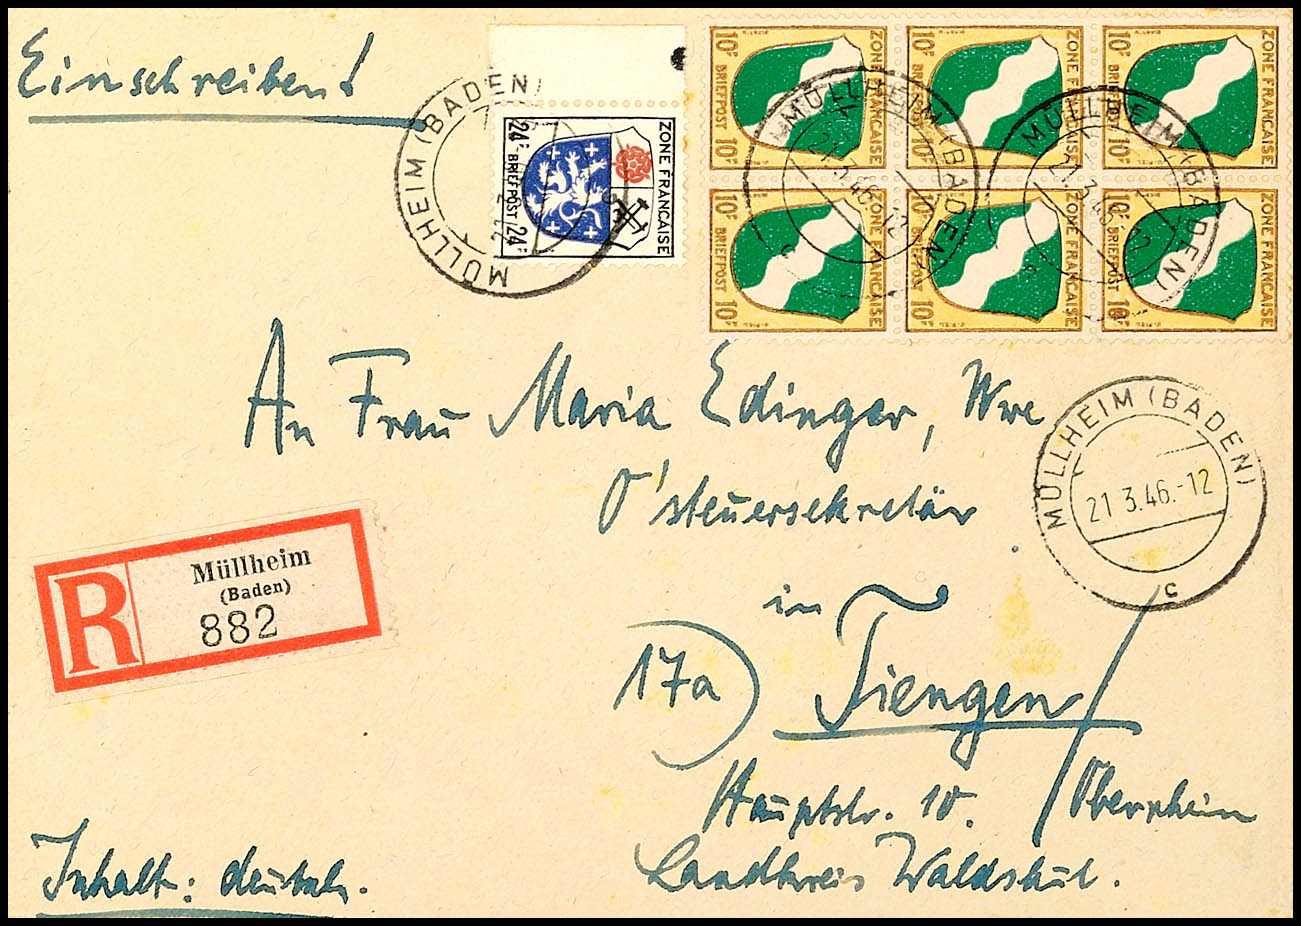 Einschreiben!
MÜLLHEIM (BADEN)
24 24
BRIEFPOST
ZONE FRANÇAISE
10 BRIEFPOST 10
ZONE FRANÇAISE
10 BRIEFPOST 10
ZONE FRANÇAISE
10 BRIEFPOST 10
ZONE FRANÇAISE
10 BRIEFPOST 10
ZONE FRANÇAISE
10 BRIEFPOST 10
ZONE FRANÇAISE
10 BRIEFPOST 10
ZONE FRANÇAISE
MÜLLHEIM (BADEN)
21.3.46.-12
c
MÜLLHEIM (BADEN)
21.3.46.-12
c
An Frau Maria Edinger, Wwe
O'steuersekretär
MÜLLHEIM (BADEN)
21 3.46.-12
c
R
Müllheim
(Baden)
882
in
17a) Tiengen/
Hauptstr. 10. /Oberrhein
Landkreis Waldshut.
Inhalt: deutsch.